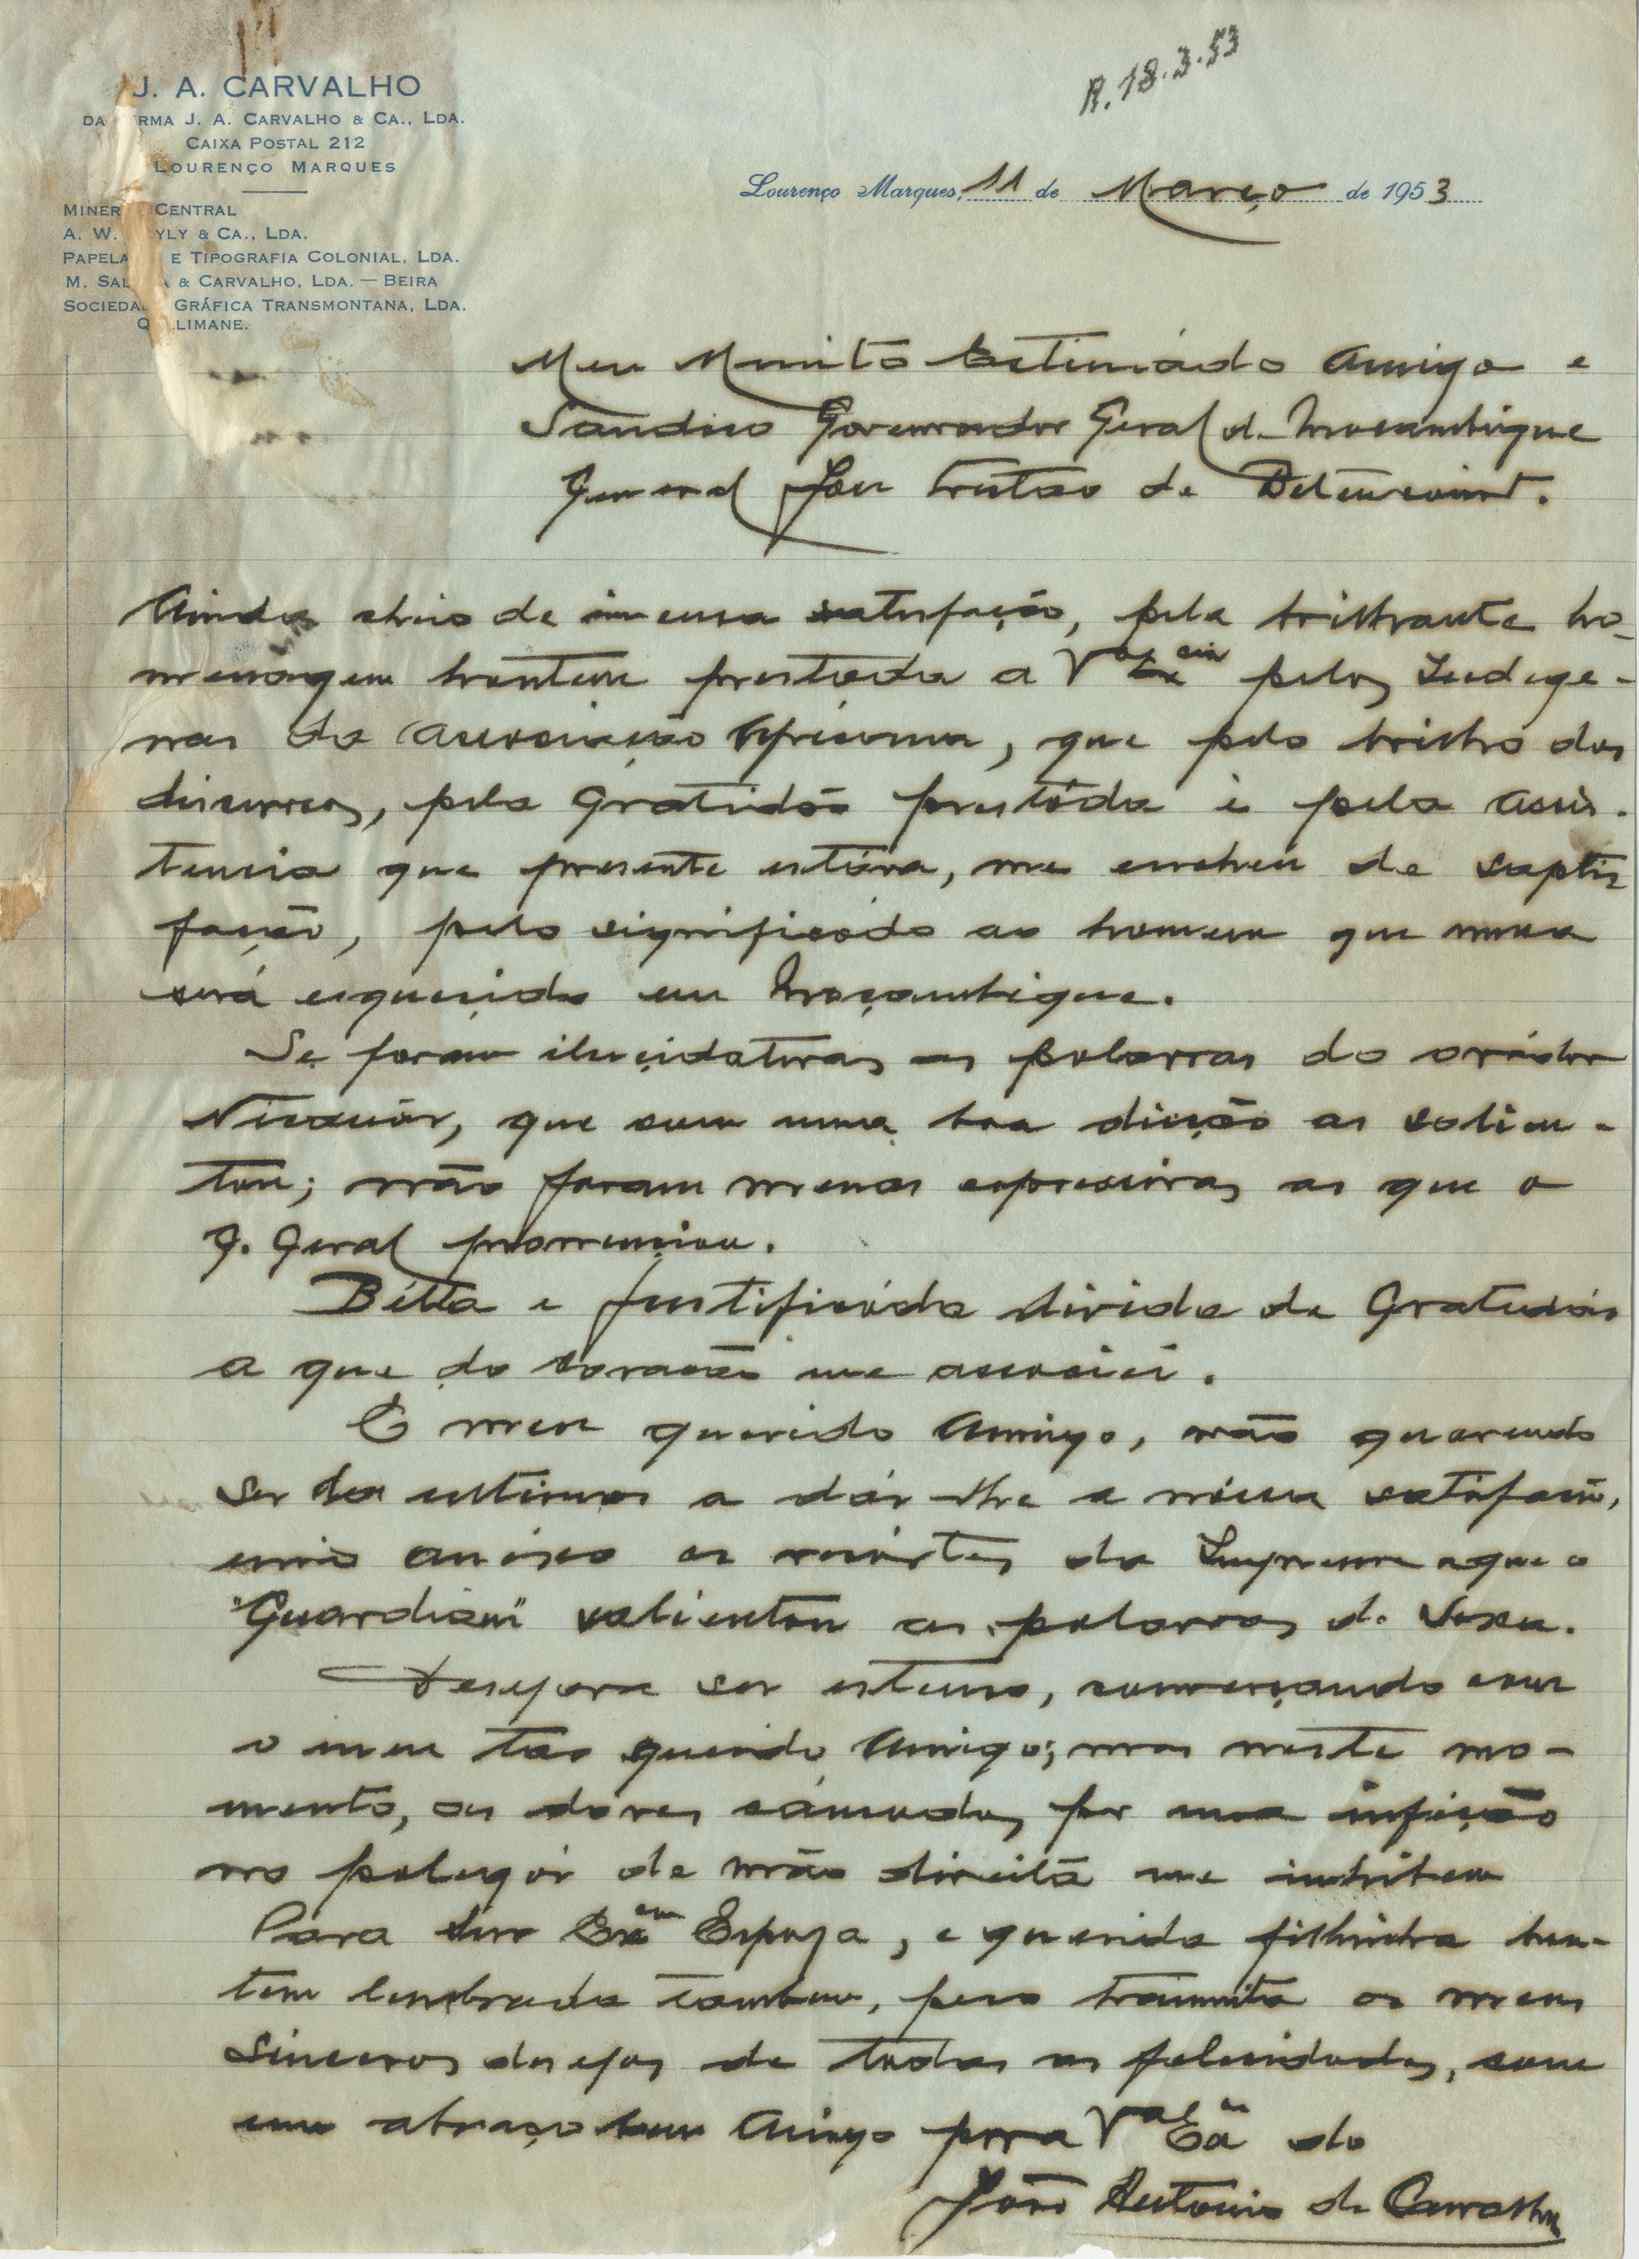 R. 18.3.53
J. A. CARVALHO
DA FIRMA J. A. CARVALHO & CA., LDA.
CAIXA POSTAL 212
LOURENÇO MARQUES
MINERVA CENTRAL
A. W. BAYLY & CA., LDA.
PAPELARIA E TIPOGRAFIA COLONIAL, LDA.
M. SALEMA & CARVALHO, LDA. — BEIRA
SOCIEDADE GRÁFICA TRANSMONTANA, LDA.
QUELIMANE.
Lourenço Marques, 11 de Março de 1953
Meu Muito Estimádo Amigo e
Governador Geral de Moçambique
General de Betencourt.
Ainda cheio de imensa satisfação, pela brilhante ho-
menágem hontem prestada a Vª Exª pelos Indige-
nas da Associação Africana, que pelo brilho dos
discursos, pela Gratidão prestáda e pela assis-
tencia que presente estáva, me encheu de saptis
fação, pelo significádo ao homem que nunca
será esquecido em Moçambique.
Se foram as palavras do orador
que com uma boa dicção as salien-
tou; não foram menos expressivas as que o
G. Geral pronunciou.
Bélla e justificáda divida de Gratidão
a que do coração me associei.
E meu querido Amigo, não querendo
ser dos ultimos a dár-lhe a minha satisfação,
envio os da Imprensa e que o
"Guardian" salientou as palavras de
Desejava ser extenso, conversando com
o meu tão querido Amigo; mas neste mo-
mento, as dores por uma infeção
no polegár da mão direita me inhibem
Para sua Exmª Esposa, e querida filhinha
tem lembrada tambem, peço transmita os meus
sinceros desejos de todas as felicidades, com
um abraço bem Amigo para Vª Exª do
João Antonio de Carvalho